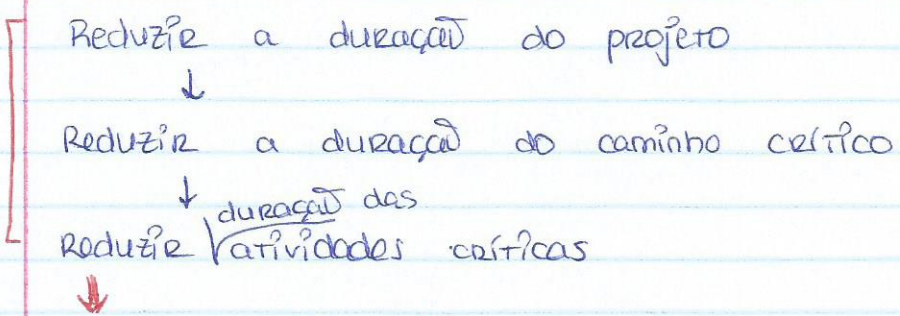 Reduzir a duração do projeto
↓
Reduzir a duração do caminho crítico
↓ duração das
Reduzir atividades críticas
↓